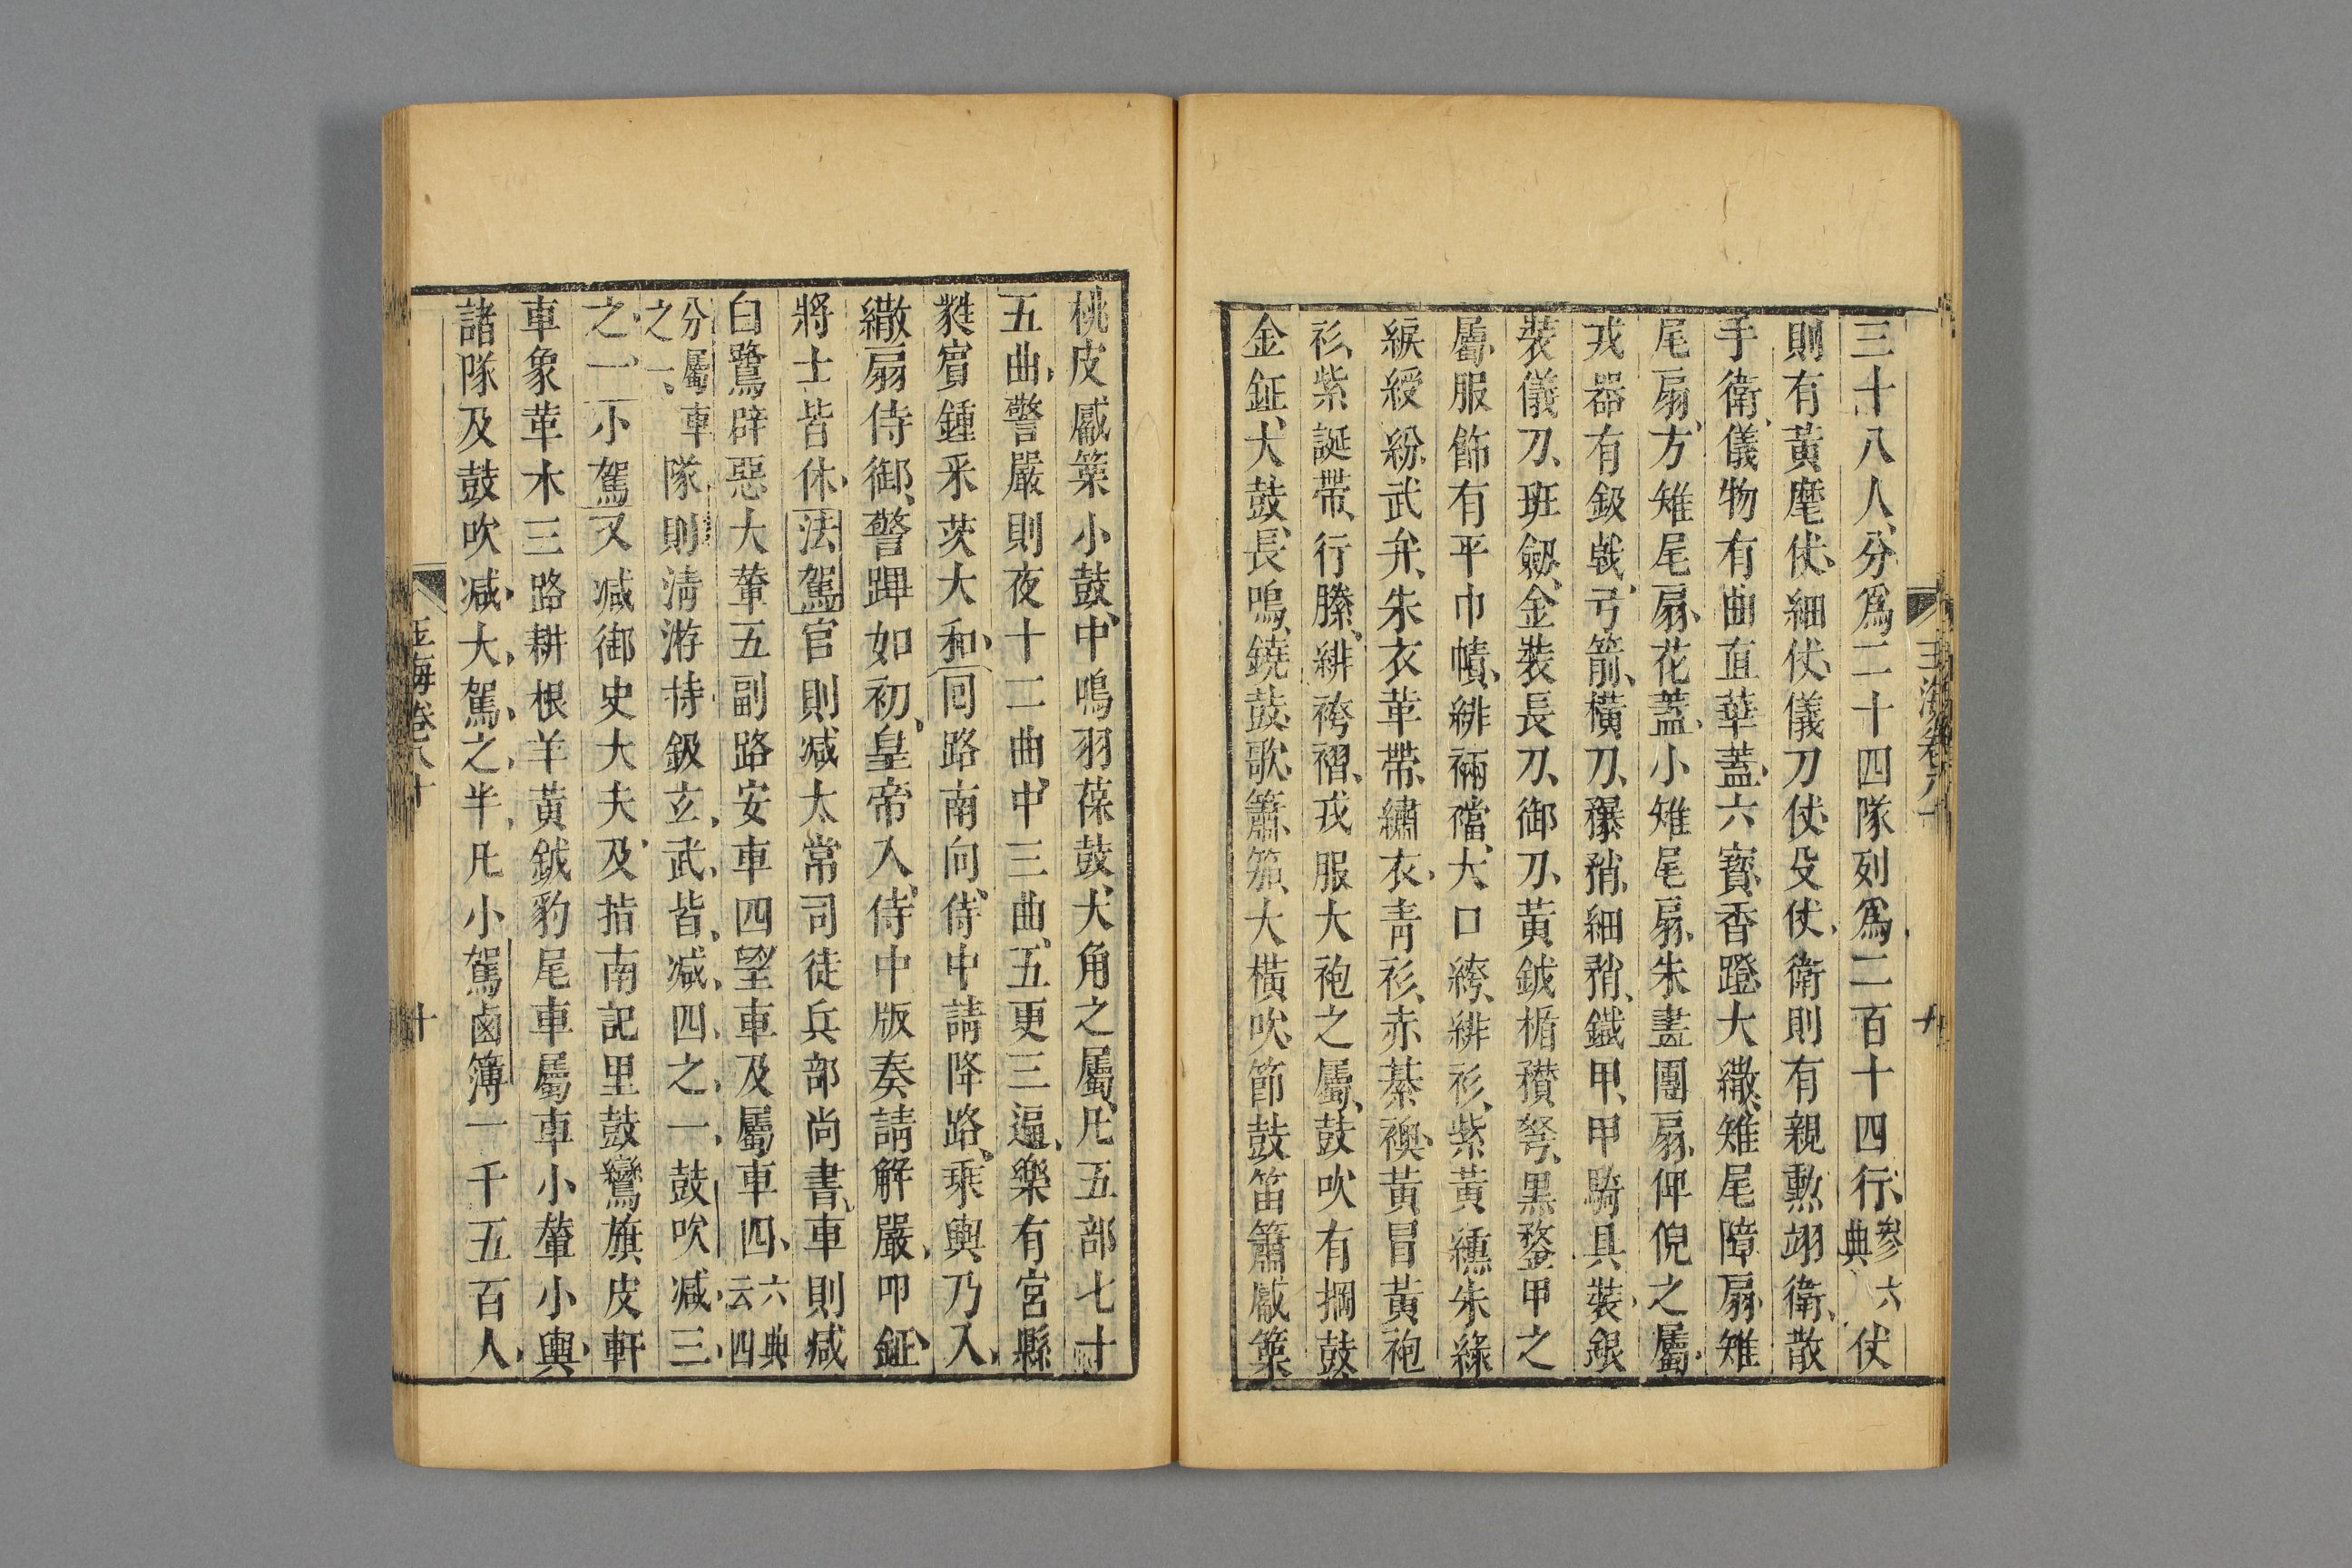 玉海卷八十
三十八人分爲二十四隊列爲二百十四行參六典仗
則有黃麾仗細仗儀刀仗殳仗衛則有親勲翊衛散
手衛儀物有曲直華蓋六寳香蹬大繖雉尾障扇雉
尾扇方雉尾扇花蓋小雉尾扇朱畫團扇俾倪之屬
戎器有鈒戟弓箭橫刀穳矟細矟鐵甲甲騎具裝銀
裝儀刀班劒金裝長刀御刀黃鉞楯穳弩黒鍪甲之
屬服飾有平巾幘緋裲襠大口絝緋衫紫黃纁朱綠
綟綬紛武弁朱衣革帶繡衣青衫赤綦襖黃冒黃袍
衫紫誕帶行縢緋袴褶戎服大袍之屬鼓吹有掆鼓
金鉦大鼓長鳴鐃鼓歌簫笳大橫吹節鼓笛簫觱篥
桃皮觱篥小鼓中鳴羽葆鼓大角之屬凡五部七十
五曲警嚴則夜十二曲中三曲五更三遍樂有宮縣
蕤賓鍾采茨大和回路南向侍中請降路乘輿乃入
繖扇侍御警蹕如初皇帝入侍中版奏請解嚴叩鉦
將士皆休法駕官則减太常司徒兵部尚書車則减
白鷺辟惡大輦五副路安車四望車及屬車四六典云四
分屬車之一隊則清游持鈒玄武皆减四之一鼓吹减三
之一小駕又减御史大夫及指南記里鼓鸞旗皮軒
車象革木三路耕根羊黃鉞豹尾車屬車小輦小輿
諸隊及鼓吹减大駕之半凡小駕鹵簿一千五百人
玉海卷八十
十